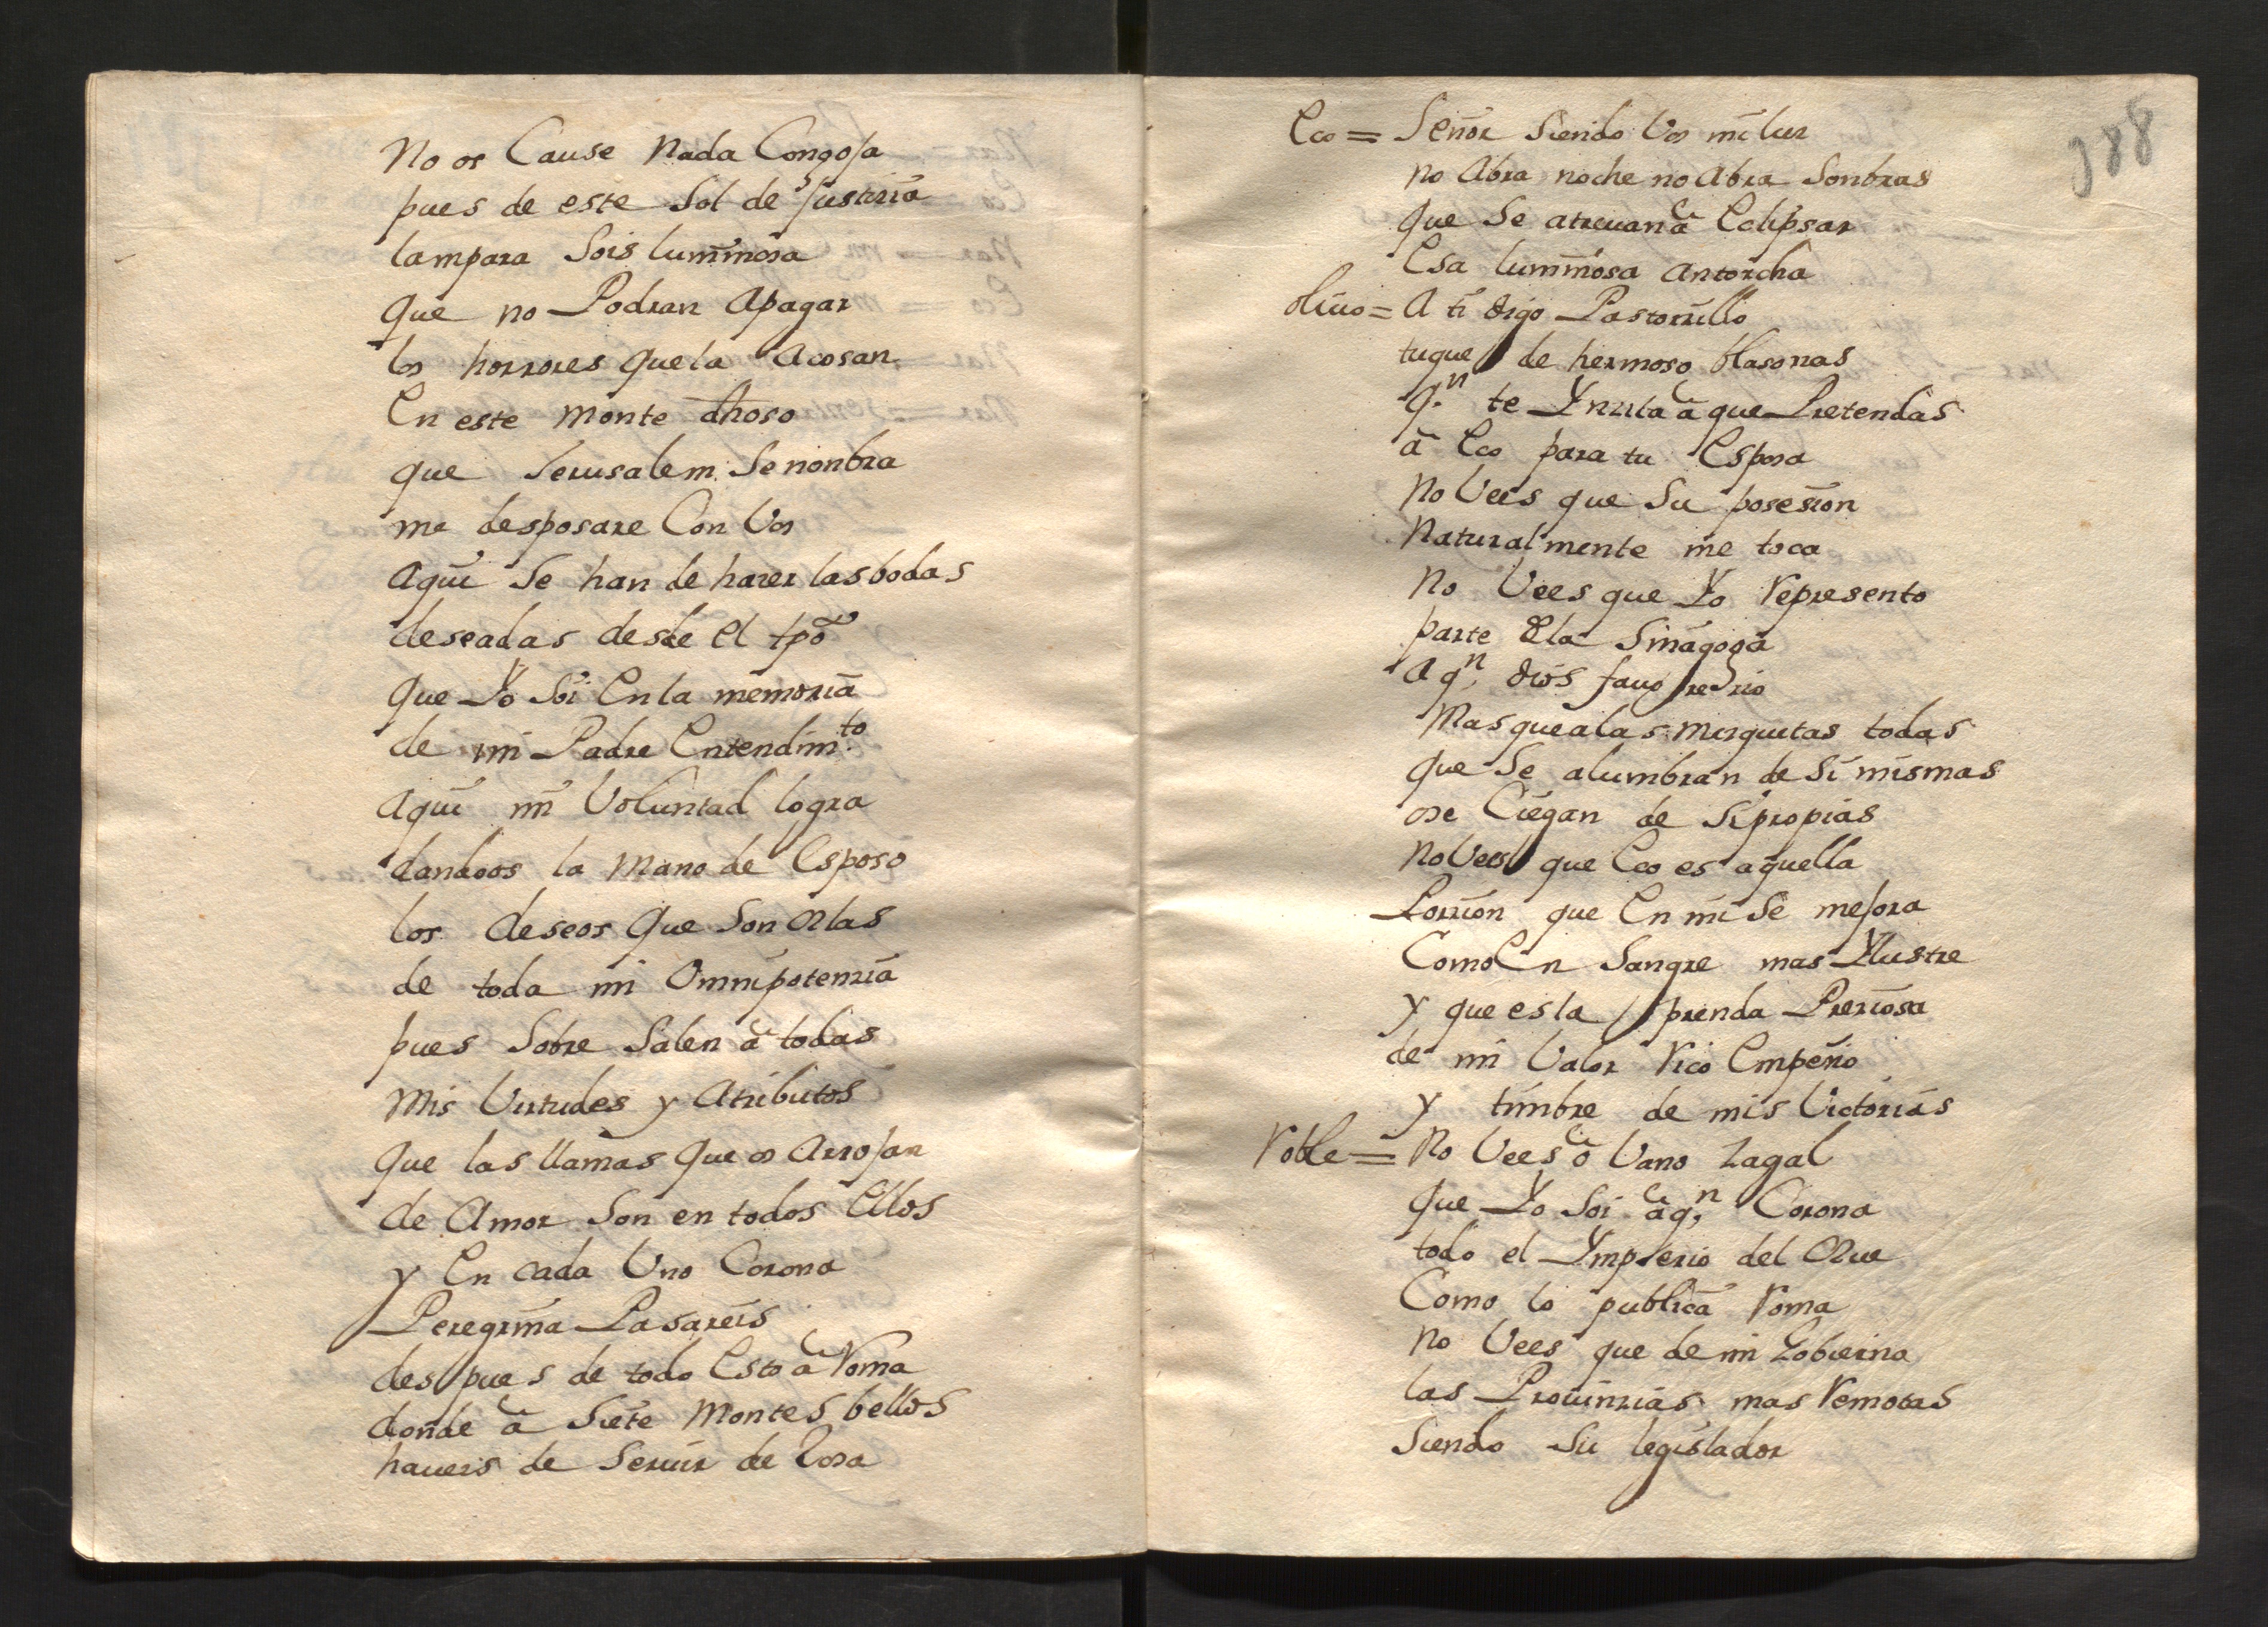 No os Cause Nada Congoja
pues de este Sol de Justizia
lampara Sois luminosa
que no Podran Apagar
los horrores que la Acosan
En este Monte dhoso
que Jerusalem Se nonbra
me desposare Con Vos
Aqui Se han de hazer las bodas
deseadas desde el tpõ
que Yo Soi En la memoria
de mi Padre Entendim.to
Aqui mi Voluntad logra
dandoos la Mano de Esposo
los deseos que Son Alas
de toda mi Omnipotenzia
pues Sobre Salen â todas
Mis Virtudes y Atributos
que las llamas que os Arrojan
de Amor Son en todos Ellos
y En cada Uno Corona
Peregrina Pasareis
despues de todo Esto â Roma
donde â Siete Montes bellos
haueis de Seruir de Rosa
388
Eco = Señor Siendo Vos mi luz
no Abra noche no Abra Sonbras
que Se atreuan â Eclipsar
Esa luminosa Antorcha
oliuo = A ti digo Pastorzillo
tu que de hermoso blasonas
q.n te Ynuita â que Pretendas
â Eco para tu Esposa
No Vees que Su posesion
Naturalmente me toca
No Vees que Yo Represento
parte de la Sinagoga
A q.n dios fauorezio
Mas que a las mezquitas todas
que Se alumbran de Si mismas
o se Ciegan de Si propias
No Vees que Eco es aquella
Porzion que En mi Se mejora
Como En Sangre mas Ylustre
y que es la prenda Preziosa
de mi Valor Rico Empeño
y timbre de mis Victorias
Roble = No Vees ô Vano Zagal
que Yo Soi â q.n Corona
todo el Ymperio del Aue
Como lo publica Roma
No Vees que de mi Gobierno
las Prouinzias mas Remotas
Siendo Su legislador